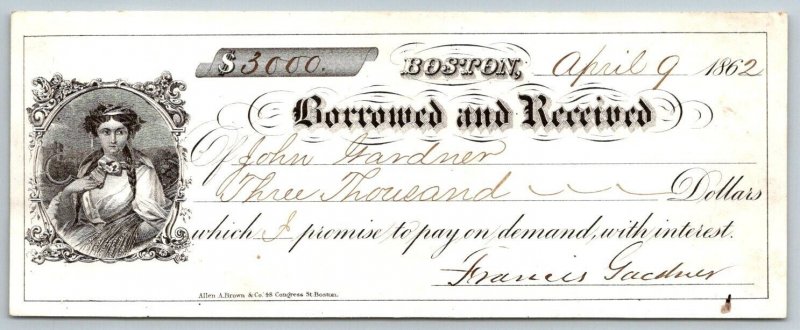 $ 3000. BOSTON, April 9 1862
Borrowed and Received
Of John Gardner
Three Thousand Dollars
which I promise to pay on demand, with interest.
Francis Gardner
Allen A. Brown & Co. 48 Congress St. Boston.